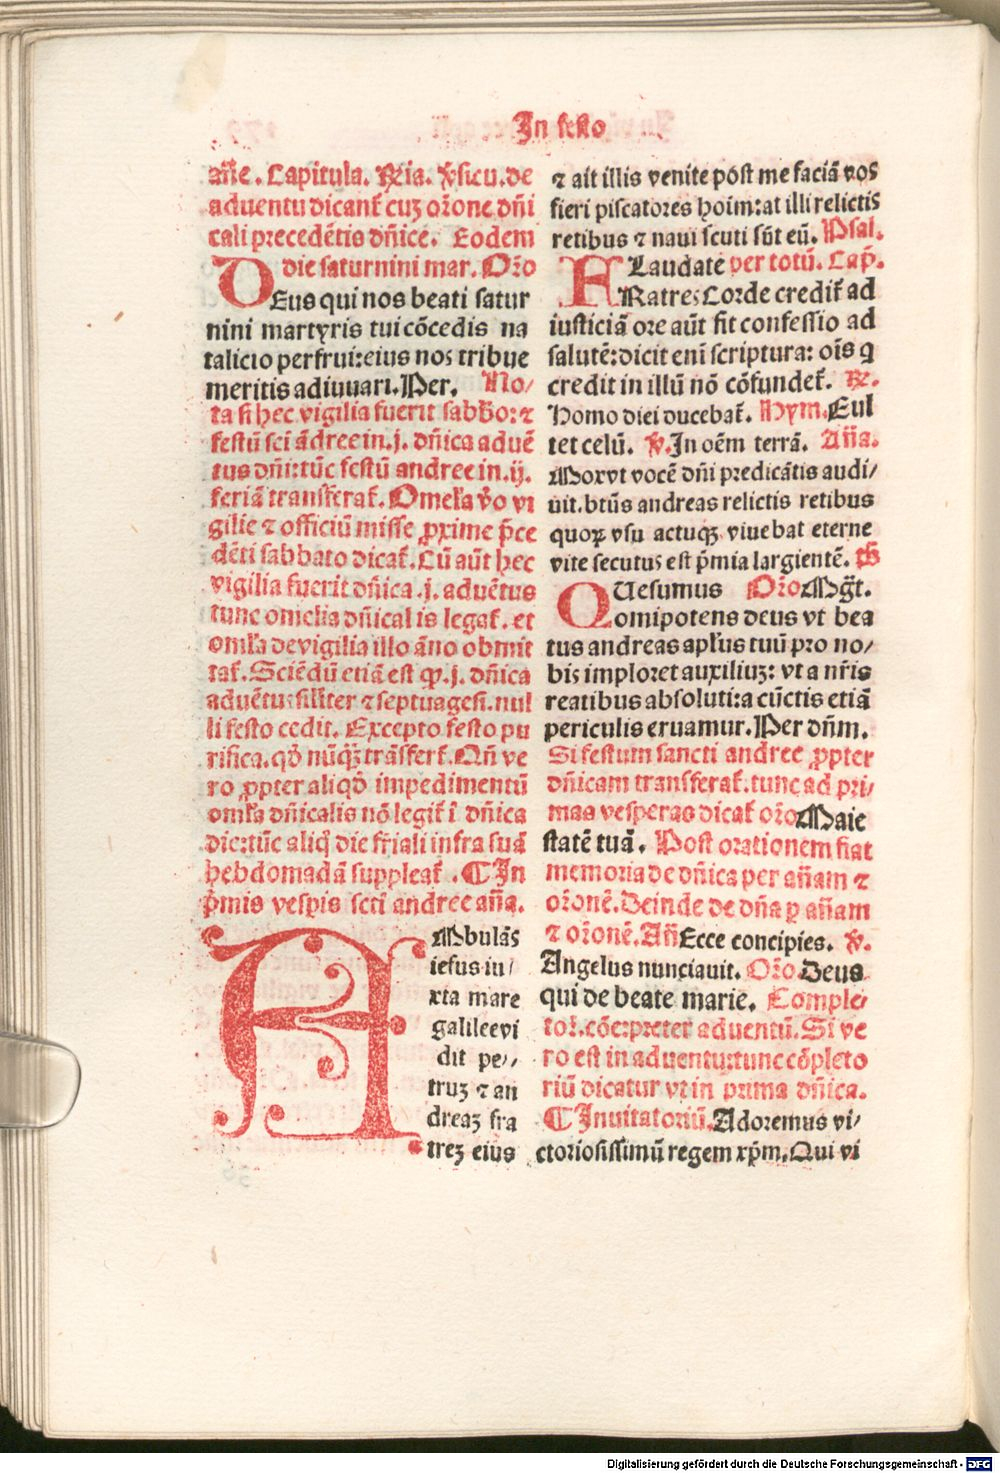 In festo
añe. Capitula. R̃ia. v̾sicu. de
aduentu dicant̃ cuȝ or̃one dñi
cali precedẽtis dñice. Eodem
die saturnini mar. Or̃o
DEus qui nos beati satur
nini martyris tui cõcedis na
talicio perfrui:eius nos tribue
meritis adiuuari. Per. No/
ta si hec vigilia fuerit sabb̃o:⁊
festũ sci ãdree in .j. dñica aduẽ
tus dñi:tũc festũ andree in .ij.
feriã transferat̃. Omel̃a v̾o vi
gilie ⁊ officiũ misse ꝓxime p̃ce
dẽti sabbato dicat̃. Cũ aũt hec
vigilia fuerit dñica .j. aduẽtus
tunc omelia dñicalis legat̃. et
oml̃a de vigilia illo ãno obmit
tat̃. Sciẽdũ etiã est ꝙ .j. dñica
aduẽtu: sil̃iter ⁊ septuagesi. nul
li festo cedit. Excepto festo pu
rifica. qd̾ nũq̃ȝ trãsfert̃. Qñ ve
ro ꝓpter aliqd̾ impedimentũ
oml̃a dñicalis nõ legit̃ ĩ dñica
dic:tũc aliq̾ die fr̃iali infra suã
hebdomadã suppleat̃. ¶ In
p̃mis vesp̃is scti andree añа.
AMbulãs
iesus iu/
xta mare
galilee vi
dit pe/
truȝ ⁊ an
dreaȝ fra
treȝ eius
⁊ ait illis venite post me faciã vos
fieri piscatores hoim:at illi relictis
retibus ⁊ naui scuti sũt eũ. Psal.
Laudate per totũ. Cap̃.
FRatres Corde credit̃ ad
iusticiã ore aũt fit confessio ad
salutẽ:dicit eni scriptura: oĩs q̾
credit in illũ nõ cõfundet̃. R̃.
Homo diei ducebat̃. Hym. Exul
tet celũ. v̾. In oẽm terrã. Aña.
Mox vt vocẽ dñi predicãtis audi/
uit. btũs andreas relictis retibus
quoꝝ vsu actuqȝ viuebat eterne
vite secutus est p̃mia largientẽ. sr̃
Or̃o Mg̃t.
QUesumus
omipotens deus vt bea
tus andreas apl̃us tuũ pro no/
bis imploret auxiliuȝ: vt a nr̃is
reatibus absoluti:a cũctis etiã
periculis eruamur. Per dñm.
Si festum sancti andree ꝓpter
dñicam transferat̃. tunc ad pri/
mas vesperas dicat̃ or̃o Maie
statẽ tuã. Post orationem fiat
memoria de dñica per añam ⁊
or̃onẽ. Deinde de dña ꝑ añam
⁊ or̃onẽ. Añ Ecce concipies. v̾.
Angelus nunciauit. Or̃o. Deus
qui de beate marie. Comple/
tor̃. cõe: preter aduentũ. Si ve
ro est in aduentu: tunc cõpleto
riũ dicatur vt in prima dñica.
¶ Inuitatoriũ. Adoremus vi/
ctoriosissimũ regem xp̃m. Qui vi
Digitalisierung gefördert durch die Deutsche Forschungsgemeinschaft - DFG